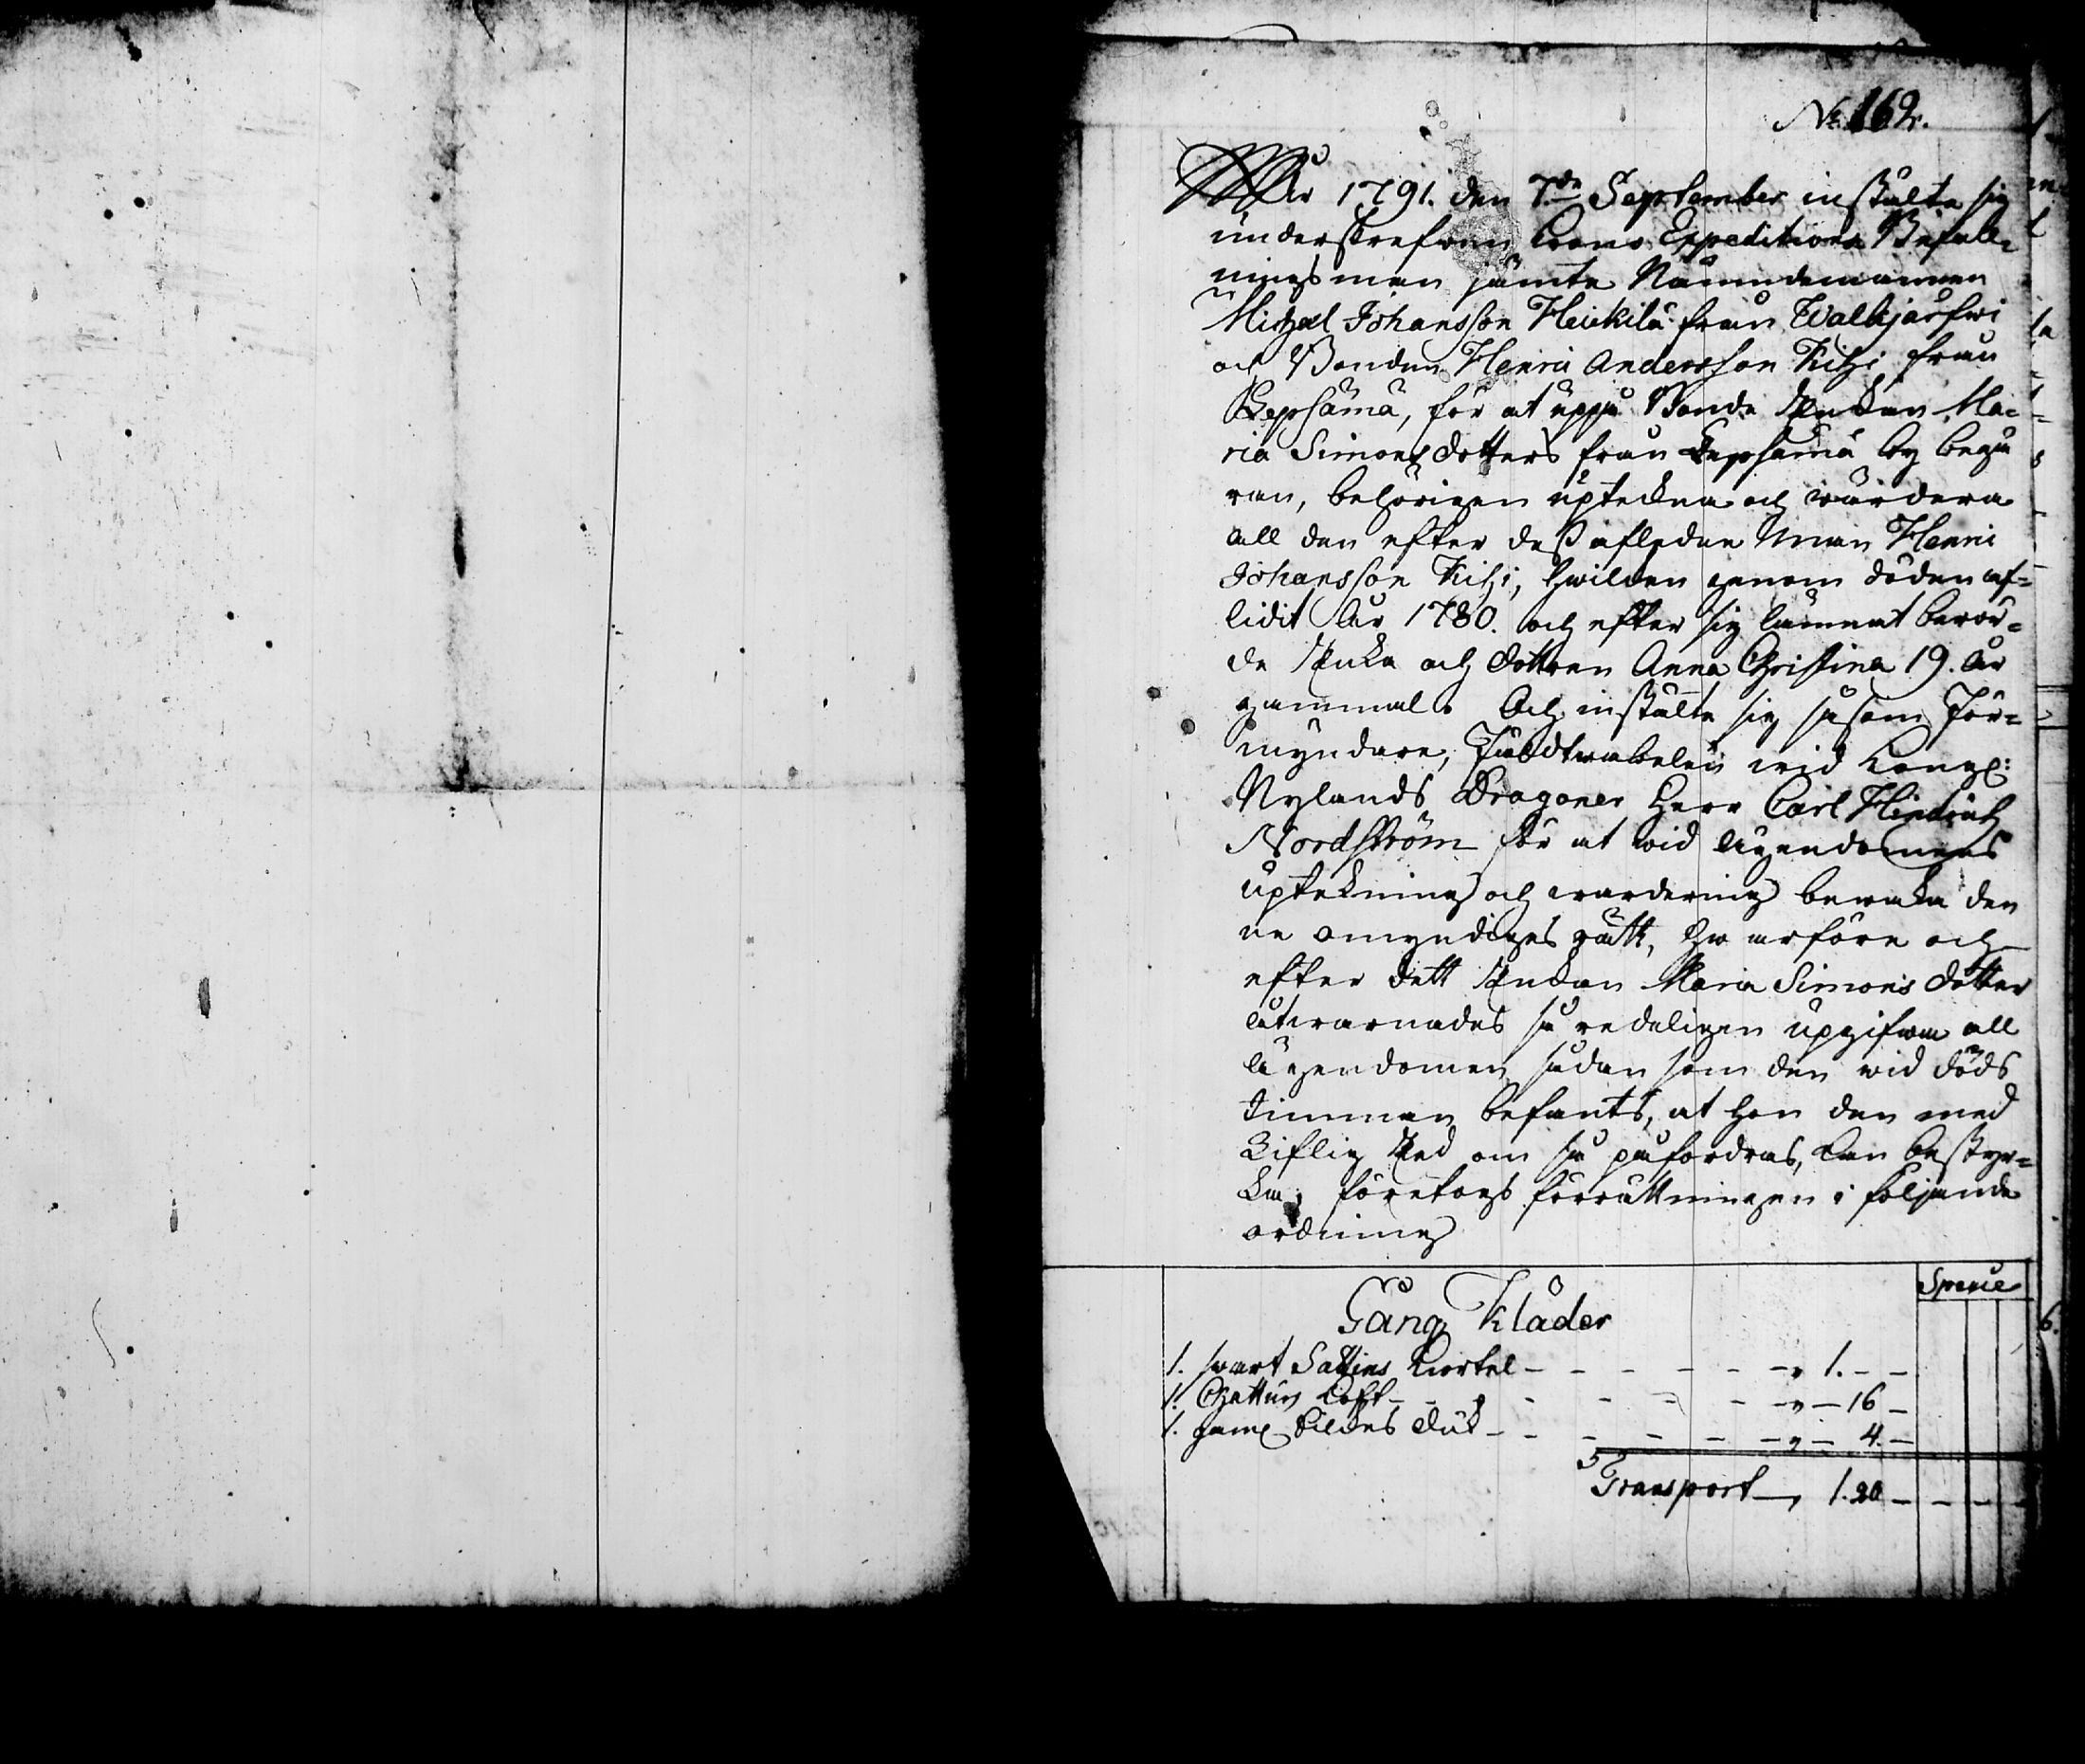 No 162.
År 1791. den 7de September instälte sig
underskrefwen Crono Expeditions Befall-
ningsman jämte Nämndemannen
Michael Johansson Heickilä från Walkjärfwi
och Bonden Henric Andersson Kihi från
Lepsämä, för at uppå Bonde Enkan Ma-
ria Simonsdotters från Lepsämä by begä
ran, behörigen uptekna och wärdera
all den efter dess afledne Man Henric
Johansson Kihi, hwilken genom döden af-
lidit År 1780. och efter sig lämnat berör-
de Enka och dottren Anna Christina 19. År
gammal. Och instälte sig såsom För-
myndare, Fältwäbeln wid Kongl:
Nylands Dragoner Herr Carl Hindrich
Nordström för at wid ägendomens
uptekning och wärdering bewaka den
ne omyndiges rätt, hwarföre och
efter det Enkan Maria Simons dotter
åtwarnades så redeligen upgifwa all
ägendomen sådan som den wid döds
timman befants, at hon den med
Liflig Ed om så påfordras, kan bestyr-
ka, företogs förrättningen i följande
ordning
Specie
Gång Kläder
1. swart Sattins kiortel - - - - - - " 1. - -
1. Cattuns koft - - - - - - " - 16 -
1. gaml silkes duk - - - - - - " - 4. -
Transport - " 1. 20 - - - -